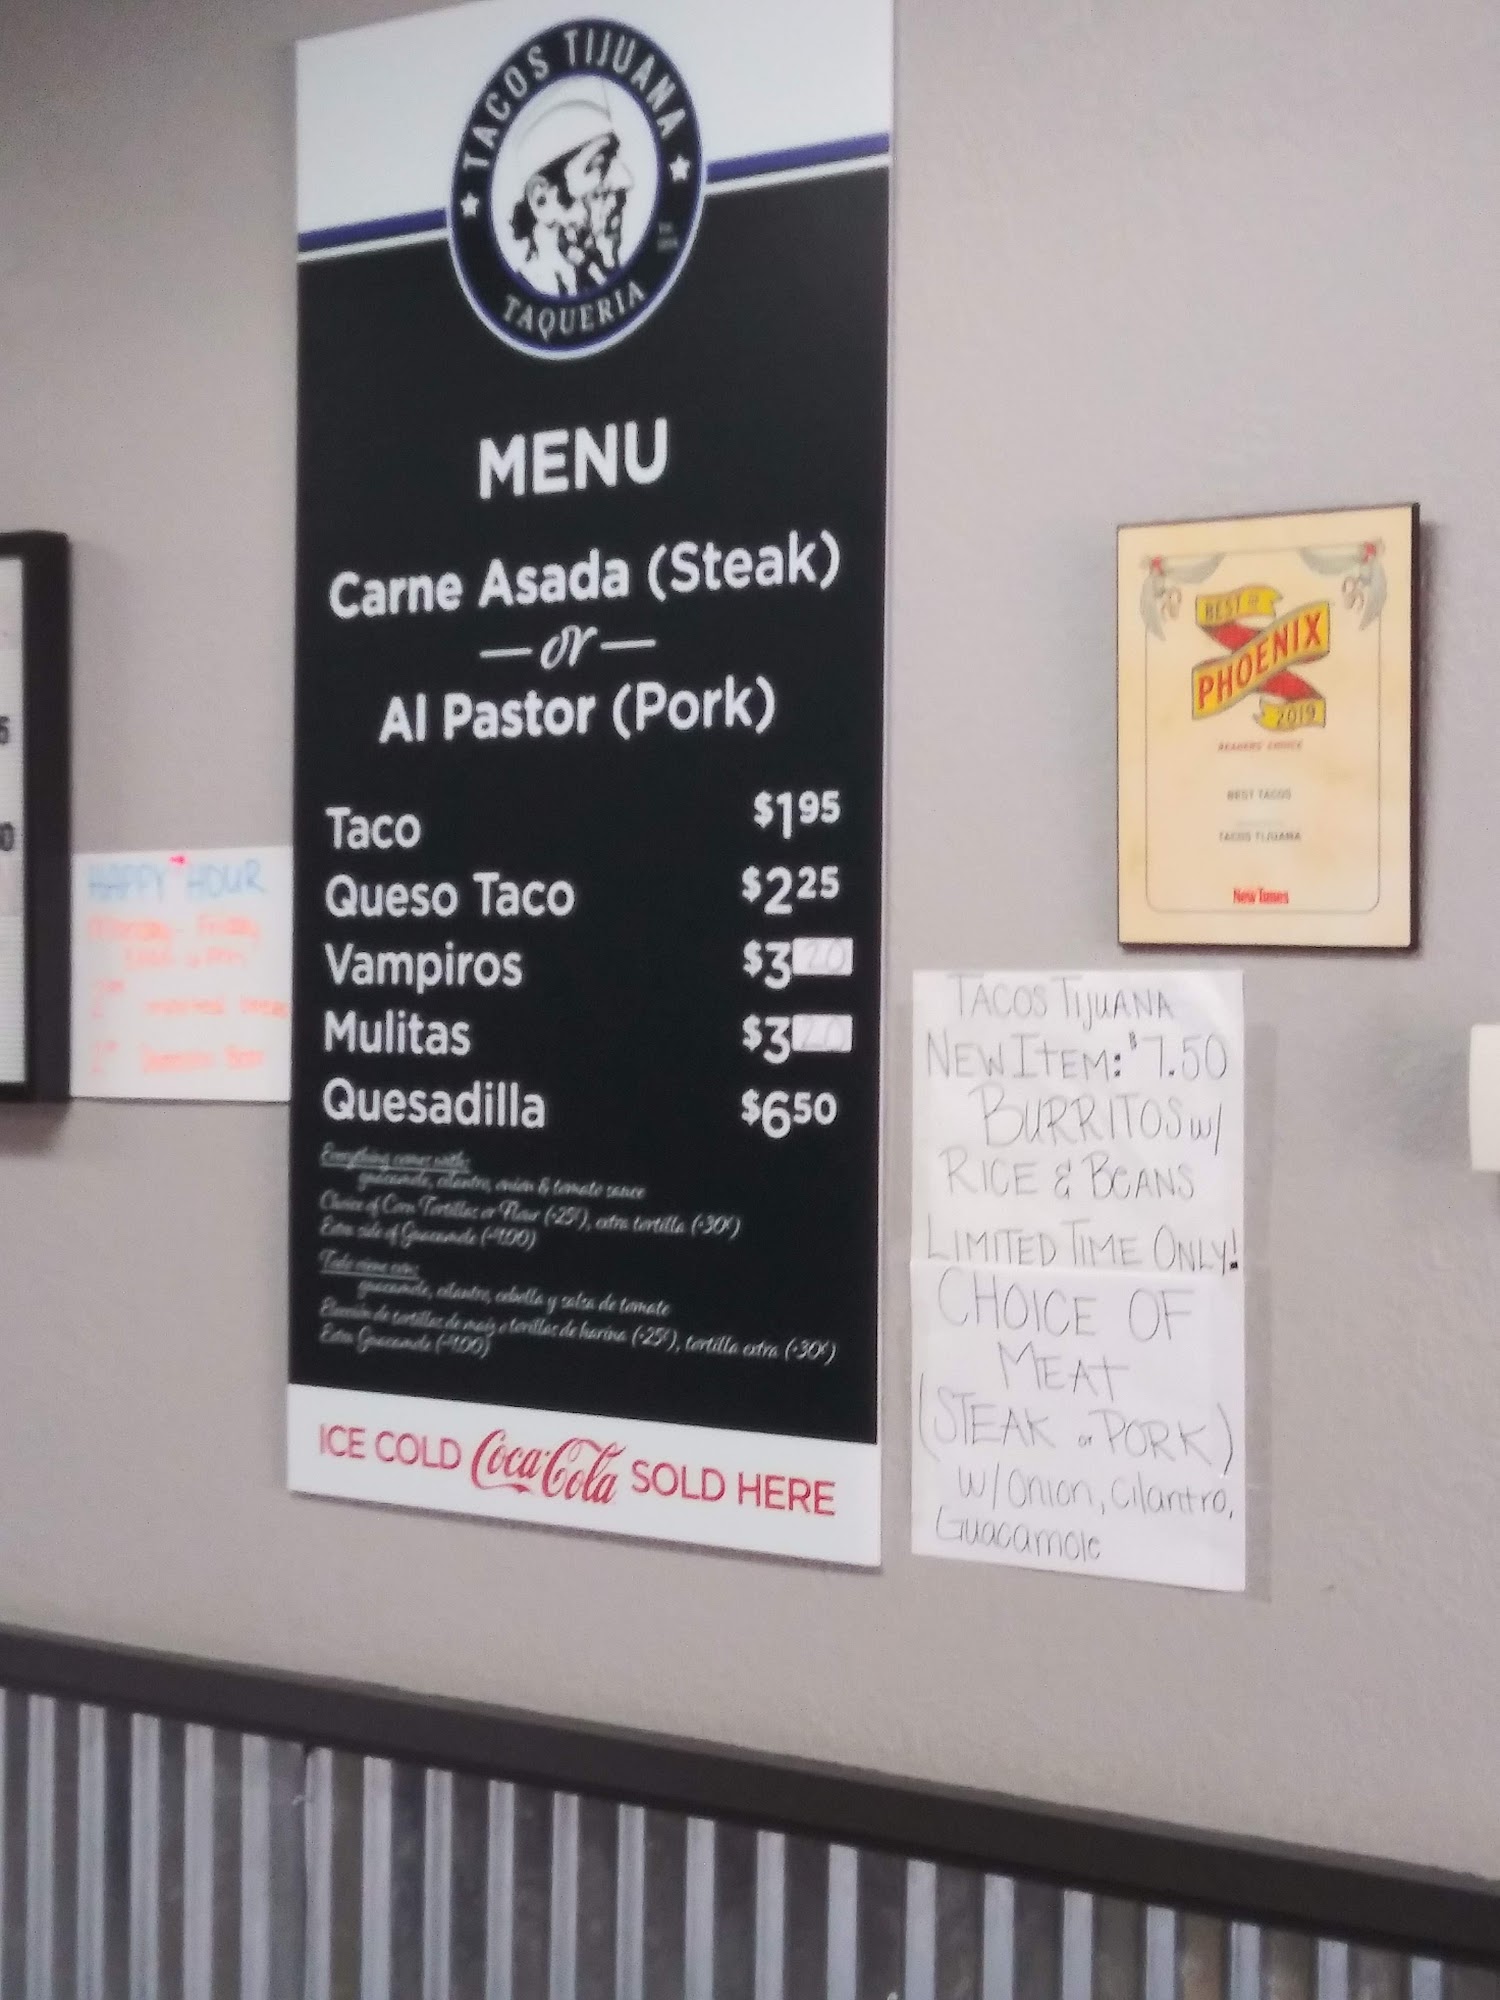 TACOS TIJUANA
TAQUERIA
MENU
Carne Asada (Steak)
— or —
Al Pastor (Pork)
Taco $1.95
Queso Taco $2.25
Vampiros $3 20
Mulitas $3 20
Quesadilla $6.50
Everything comes with:
guacamole, cilantro, onion & tomato sauce
Choice of Corn Tortillas or Flour (+25¢), extra tortilla (+30¢)
Extra side of Guacamole (+$1.00)
Todo viene con:
guacamole, cilantro, cebolla y salsa de tomate
Elección de tortillas de maíz o tortillas de harina (+25¢), tortilla extra (+30¢)
Extra Guacamole (+$1.00)
ICE COLD Coca-Cola SOLD HERE
HAPPY HOUR
Monday - Friday
BEST OF
PHOENIX
2019
READERS' CHOICE
BEST TACOS
TACOS TIJUANA
New Times
TACOS TIJUANA
NEW ITEM: $7.50
BURRITOS w/
RICE & BEANS
LIMITED TIME ONLY!
CHOICE OF
MEAT
(STEAK or PORK)
W/ Onion, Cilantro,
Guacamole